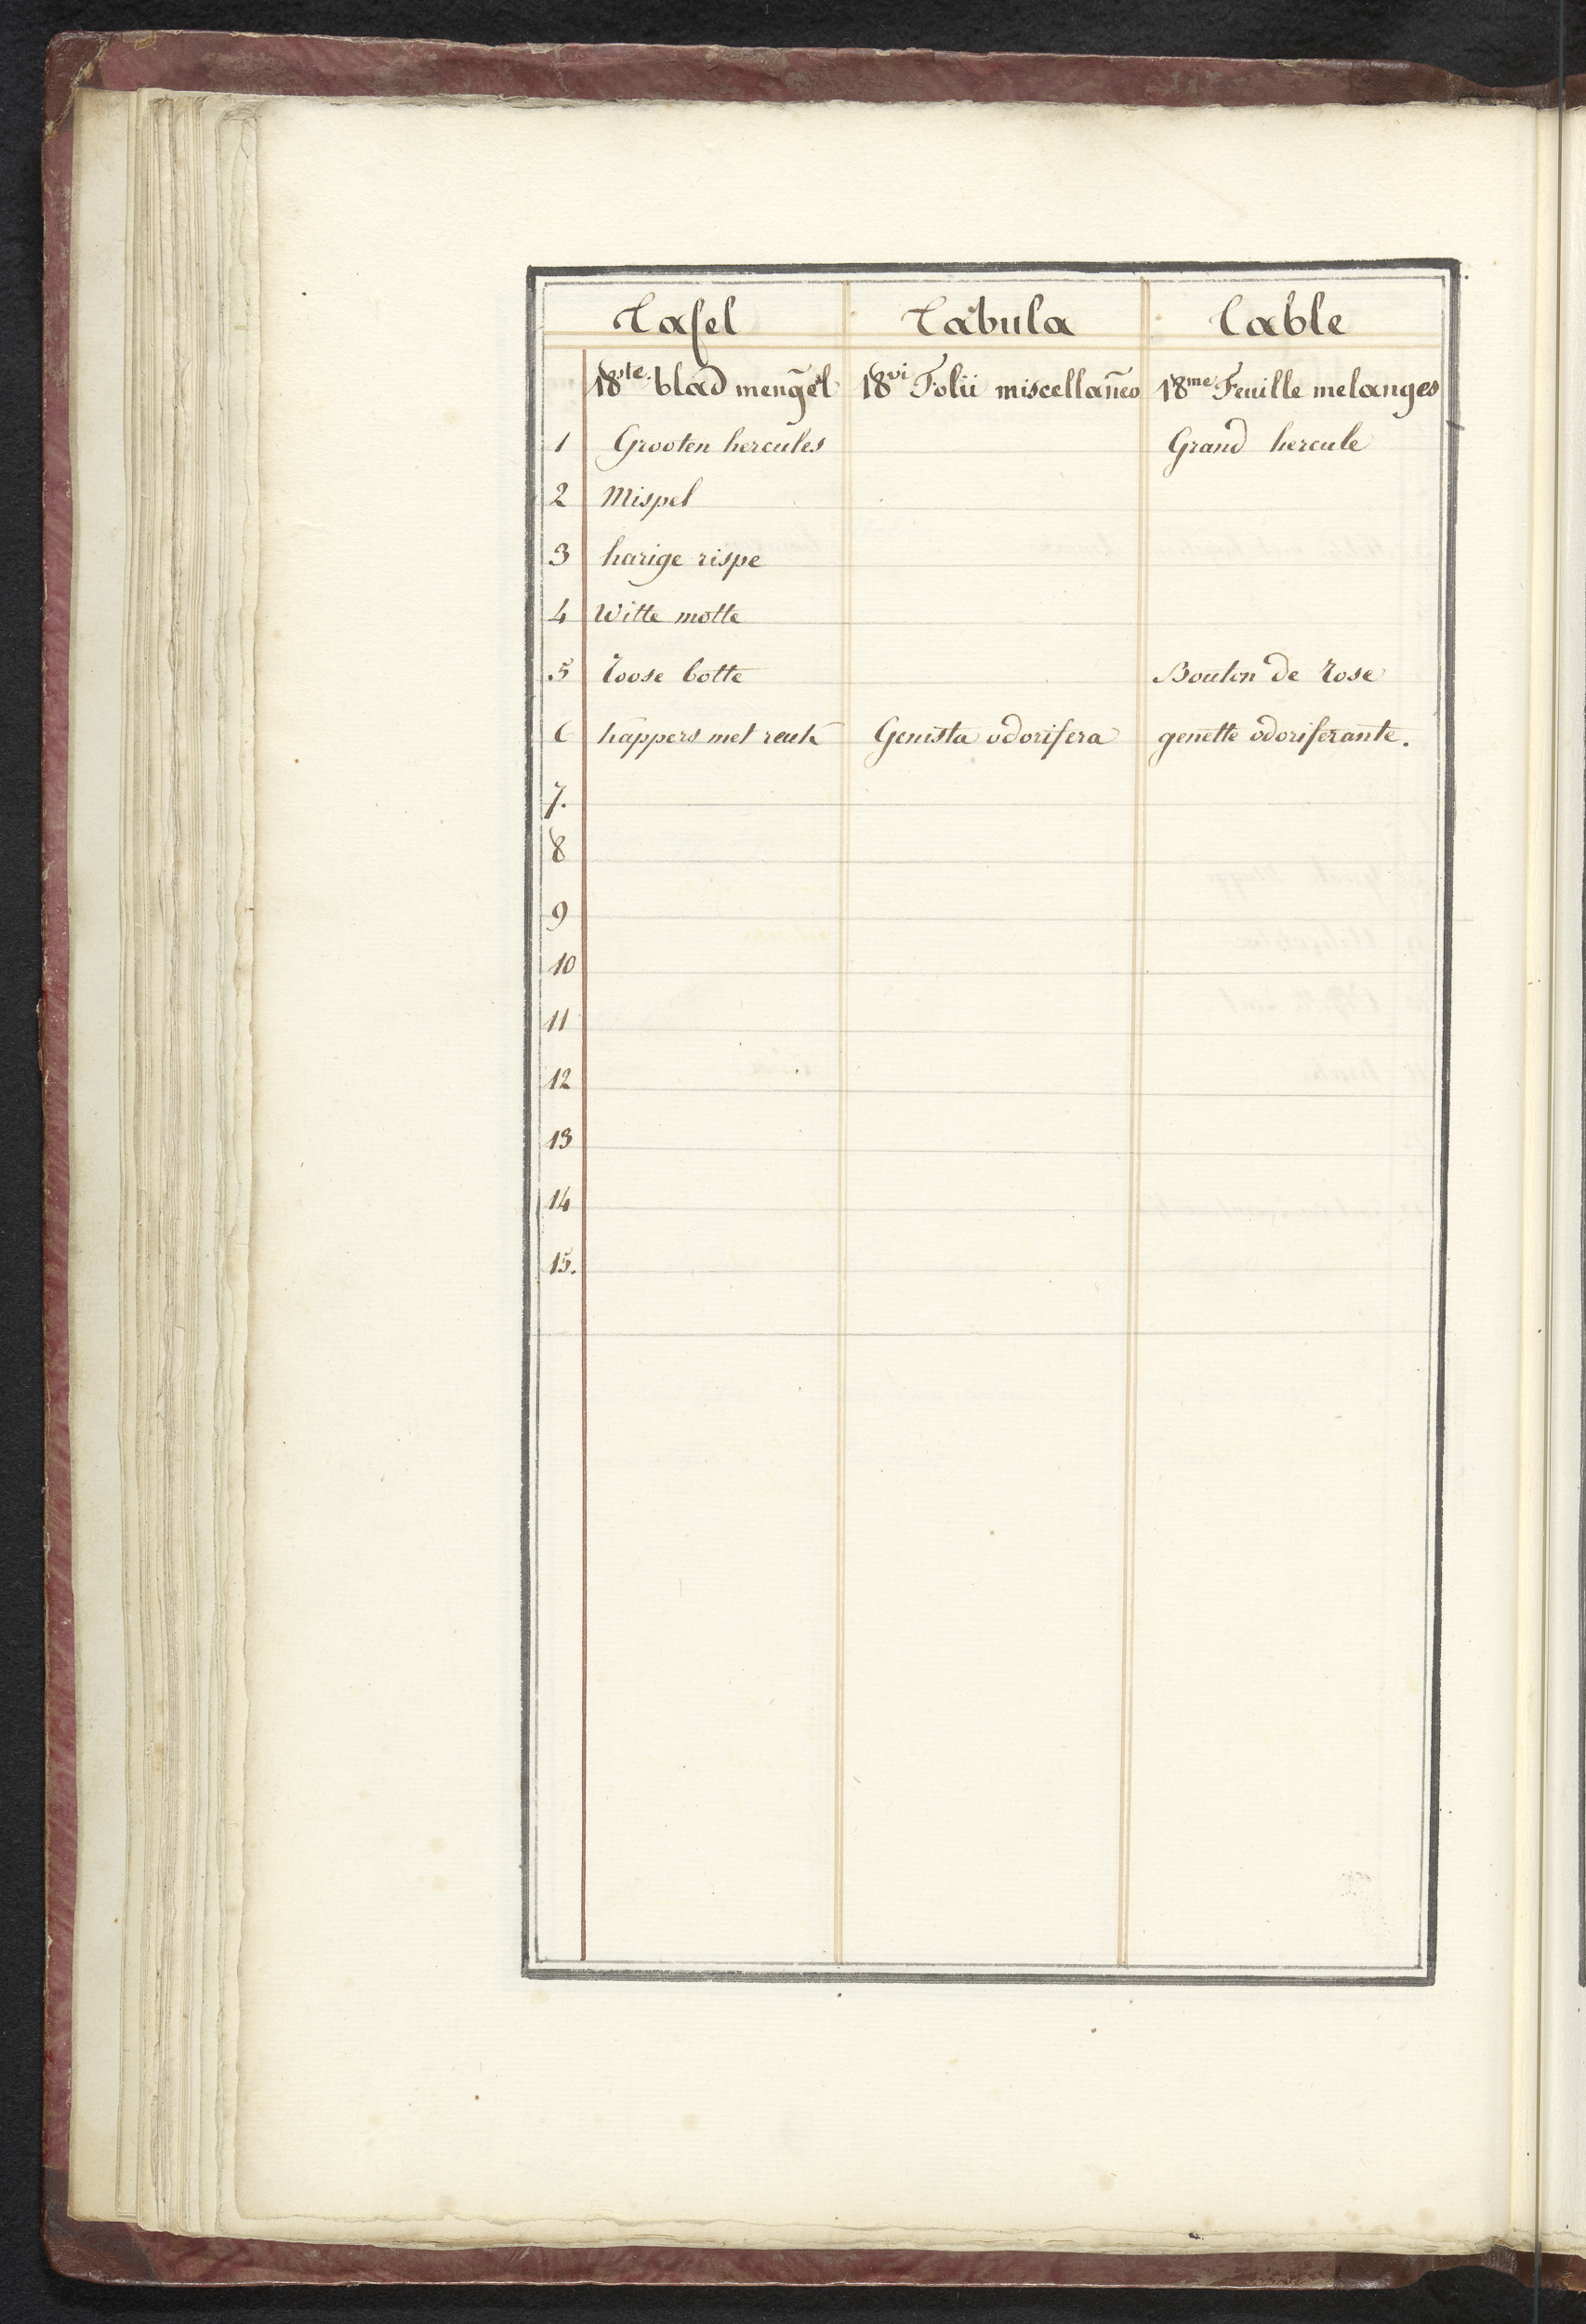 Tafel Tabula Table
18ste blad mengel 18vi Folii miscellaneo 18me Feuille melanges
1 Grooten hercules Grand hercule
2 Mispel
3 harige rispe
4 Witte motte
5 Roose botte Bouton de Rose
6 happers met reuk Genista odorifera genette odoriferante.
7.
8
9
10
11
12
13
14
15.